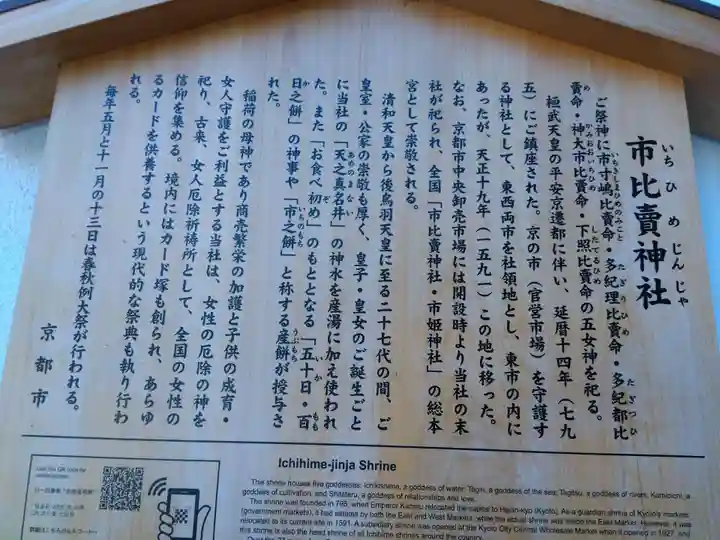 市比賣神社
いちひめじんじゃ
ご祭神に市寸嶋比賣命・多紀理比賣命・多紀都比
賣命・神大市比賣命・下照比賣命の五女神を祀る。
桓武天皇の平安京遷都に伴い、延暦十四年（七九
五）にご鎮座された。京の市（官営市場）を守護す
る神社として、東西両市を社領地とし、東市の内に
あったが、天正十九年（一五九一）この地に移った。
なお、京都市中央卸売市場には開設時より当社の末
社が祀られ、全国「市比賣神社・市姫神社」の総本
宮として崇敬される。
清和天皇から後鳥羽天皇に至る二十七代の間、ご
皇室・公家の崇敬も厚く、皇子・皇女のご誕生ごと
に当社の「天之真名井」の神水を産湯に加え使われ
た。また「お食べ初め」のもととなる「五十日・百
日之餅」の神事や「市之餅」と称する産餅が授与さ
れた。
稲荷の母神であり商売繁栄の加護と子供の成育・
女人守護をご利益とする当社は、女性の厄除の神を
祀り、古来、女人厄除祈祷所として、全国の女性の
信仰を集める。境内にはカード塚も創られ、あらゆ
るカードを供養するという現代的な祭典も執り行わ
れる。
毎年五月と十一月の十三日は春秋例大祭が行われる。
京都市
Ichihime-jinja Shrine
This shrine houses five goddesses: Ichikishima, a goddess of water; Tagiri, a goddess of the sea; Tagitsu, a goddess of rivers, Kamioichi, a
goddess of cultivation, and Shitateru, a goddess of relationships and love.
The shrine was founded in 795, when Emperor Kanmu relocated the capital to Heian-kyo (Kyoto). As a guardian shrine of Kyoto's markets
(government markets), it had estates by both the East and West Markets, while the actual shrine was inside the East Market. However, it was
relocated to its current site in 1591. A subsidiary shrine was opened at the Kyoto City Central Wholesale Market when it opened in 1927, and
this shrine is also the head shrine of all Ichihime shrines around the country.